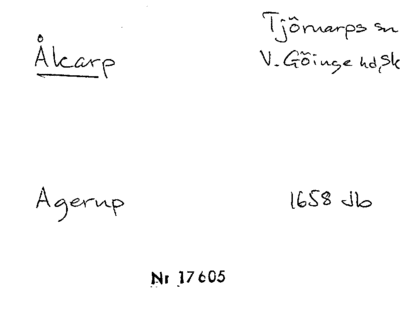 Åkarp
Tjörnarps sn
V. Göinge hd, Sk
Agerup 1658 Jb
Nr 17605